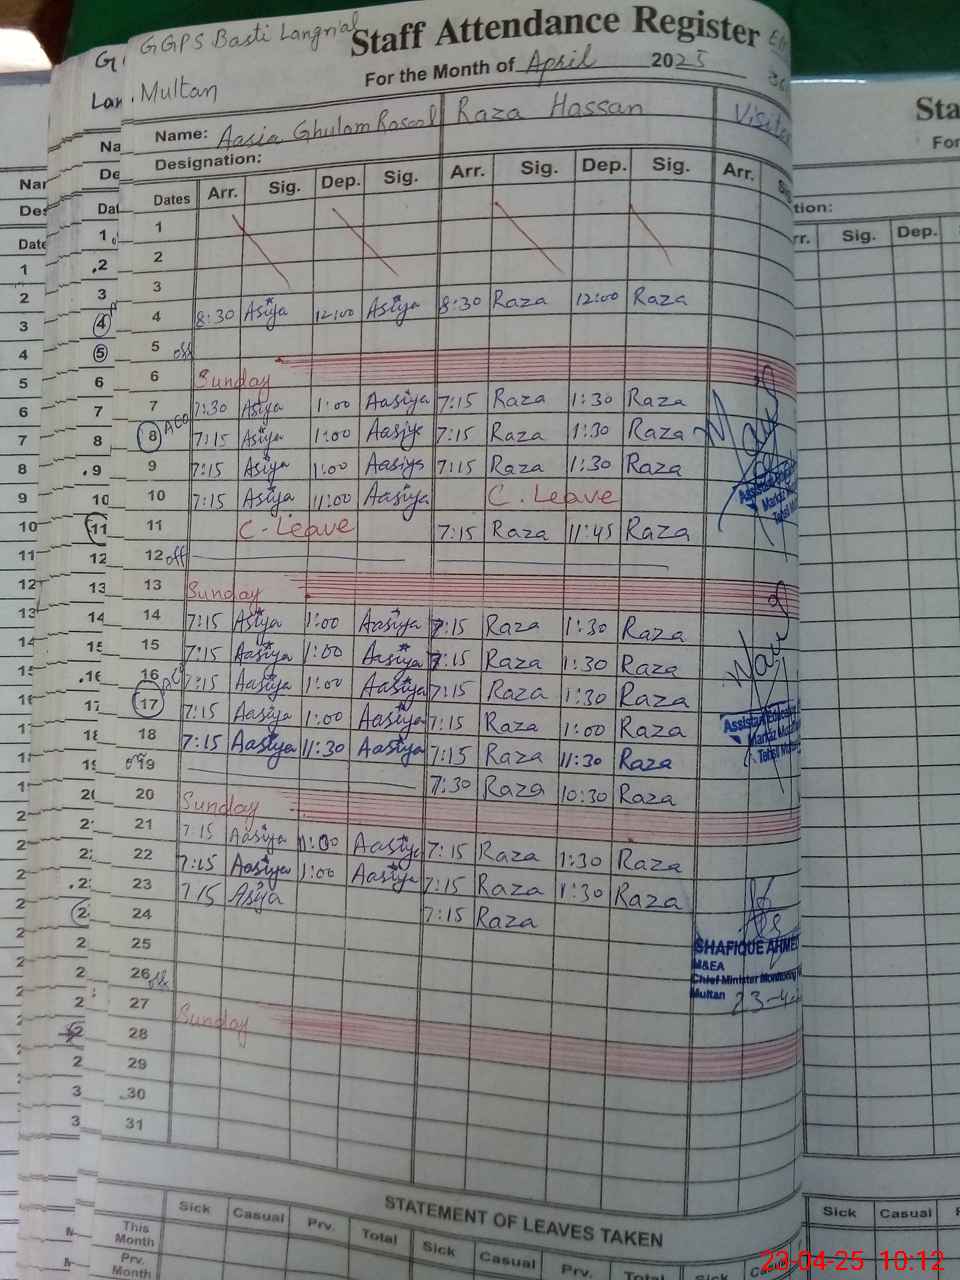 GGPS Basti Langrial
Staff Attendance Register
Multan
For the Month of April 2025
Name: Aasia Ghulam Rasool Raza Hassan
Designation:
Dates Arr. Sig. Dep. Sig. Arr. Sig. Dep. Sig. Arr.
1
2
3
4 8:30 Asiya 12:00 Asiya 8:30 Raza 12:00 Raza
5 off
6 Sunday
7 7:30 Asiya 1:00 Aasiya 7:15 Raza 1:30 Raza
8 7:15 Asiya 1:00 Aasiya 7:15 Raza 1:30 Raza
9 7:15 Asiya 1:00 Aasiya 7:15 Raza 1:30 Raza
10 7:15 Asiya 11:00 Aasiya C. Leave
11 C. Leave 7:15 Raza 11:45 Raza
12 off
13 Sunday
14 7:15 Asiya 1:00 Aasiya 7:15 Raza 1:30 Raza
15 7:15 Aasiya 1:00 Aasiya 7:15 Raza 1:30 Raza
16 7:15 Aasiya 1:00 Aasiya 7:15 Raza 1:30 Raza
17 7:15 Aasiya 1:00 Aasiya 7:15 Raza 1:00 Raza
18 7:15 Aasiya 11:30 Aasiya 7:15 Raza 11:30 Raza
19 off 7:30 Raza 10:30 Raza
20 Sunday
21 7:15 Aasiya 1:00 Aasiya 7:15 Raza 1:30 Raza
22 7:15 Aasiya 1:00 Aasiya 7:15 Raza 1:30 Raza
23 7:15 Asiya 7:15 Raza
24
25
26 off
27 Sunday
28
29
30
31
SHAFIQUE AHMED
M&EA
Chief Minister Monitoring
Multan
STATEMENT OF LEAVES TAKEN
Sick Casual Prv. Total Sick Casual Prv. Total Sick
This Month
Prv. Month
Sig. Dep.
Sick Casual
23-04-25 10:12